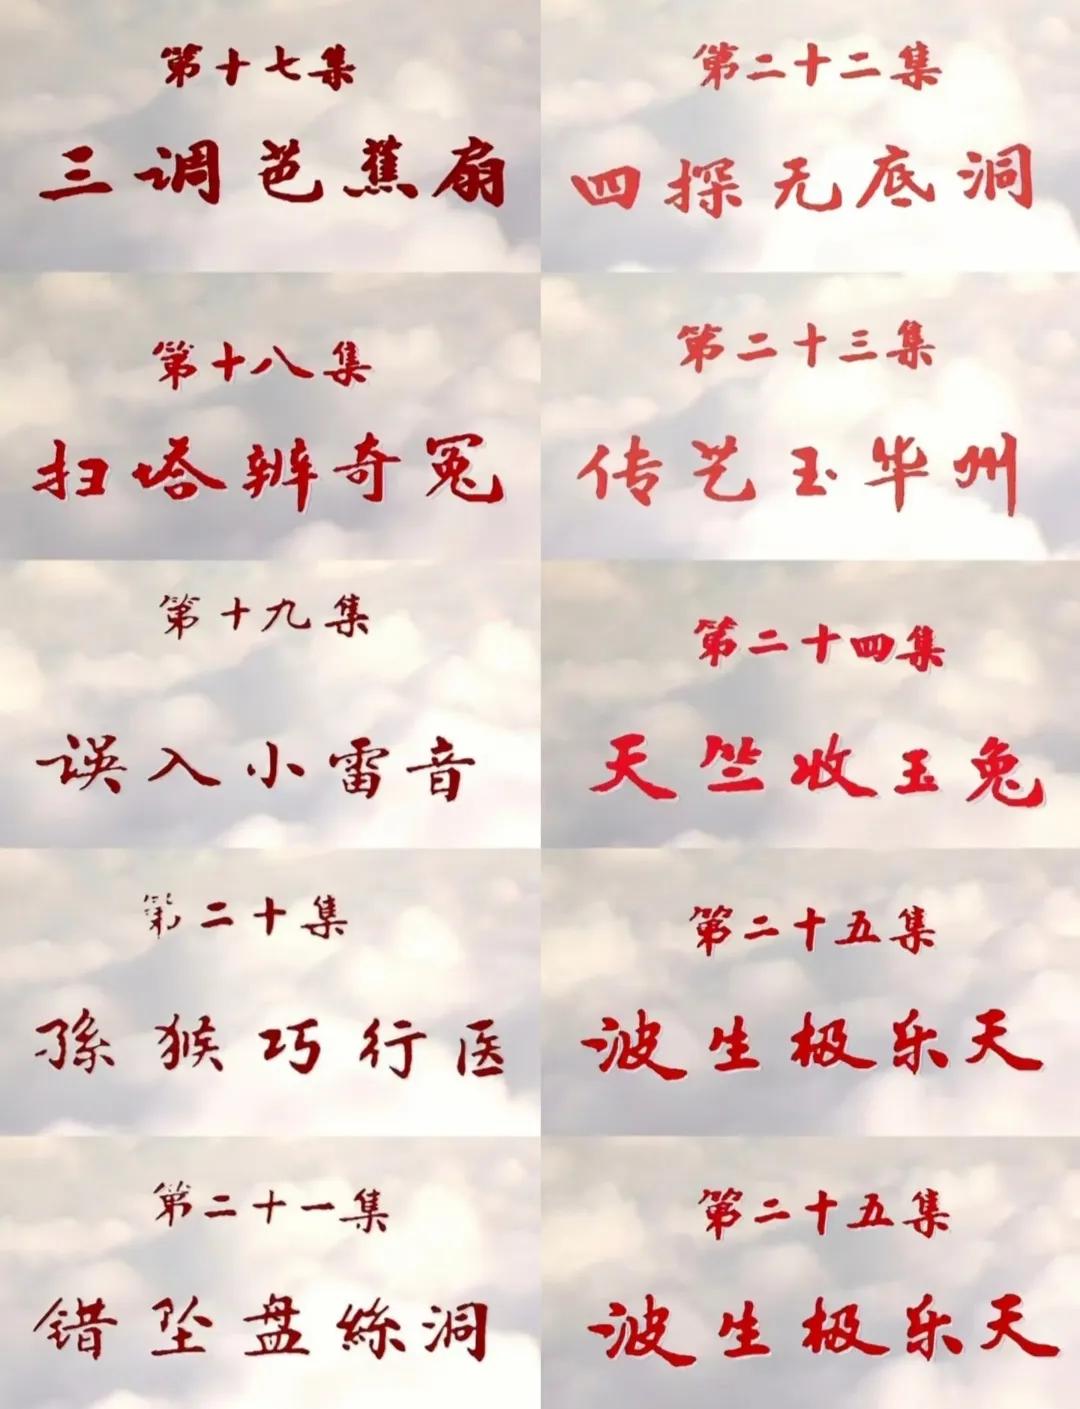 第十七集
三调芭蕉扇
第十八集
扫塔辨奇冤
第十九集
误入小雷音
第二十集
孫猴巧行医
第二十一集
错坠盘絲洞
第二十二集
四探无底洞
第二十三集
传艺玉华州
第二十四集
天竺收玉兔
第二十五集
波生极乐天
第二十五集
波生极乐天